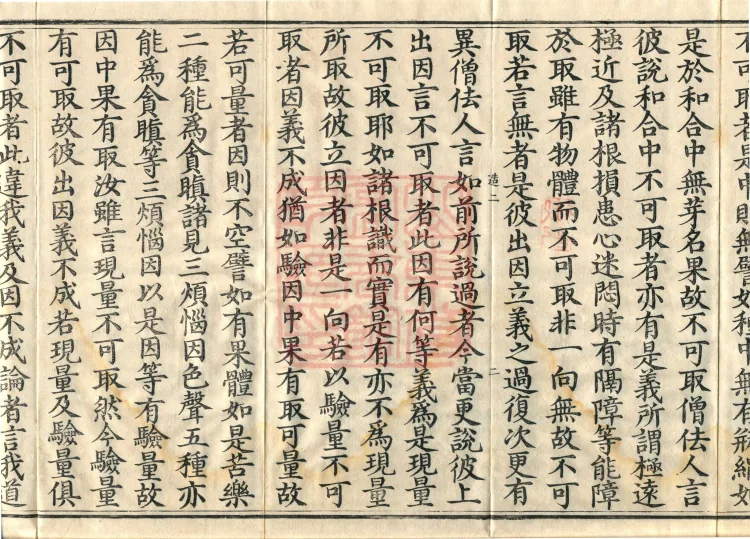 不可取者是中則無譬如種中無有瓶絹如
是於和合中無芽名果故不可取僧佉人言
彼說和合中不可取者亦有是義所謂極遠
極近及諸根損患心迷悶時有隔障等能障
於取雖有物體而不可取非一向無故不可
取若言無者是彼出因立義之過復次更有
造二 二
異僧佉人言如前所說過者今當更說彼上
出因言不可取者此因有何等義爲是現量
不可取耶如諸根識而實是有亦不爲現量
所取故彼立因者非是一向若以驗量不可
取者因義不成猶如驗因中果有取可量故
若可量者因則不空譬如有果體如是苦樂
二種能爲貪瞋諸見三煩惱因色聲五種亦
能爲貪瞋等三煩惱因以是因等有驗量故
因中果有取汝雖言現量不可取然今驗量
有可取故彼出因義不成若現量及驗量俱
不可取者此違我義及因不成論者言我道